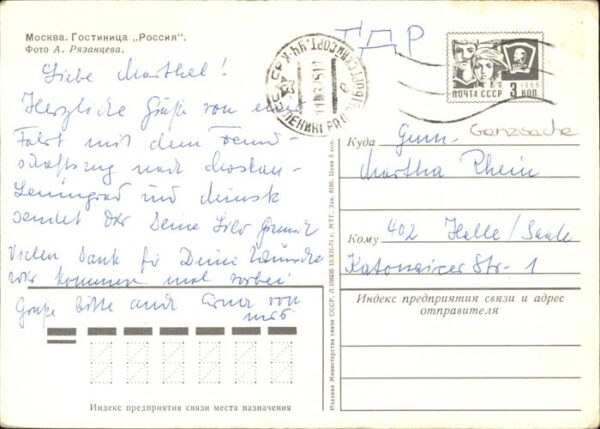 Москва. Гостиница „Россия".
Фото А. Рязанцева.
ГДР
ПОЧТА СССР 3 КОП
1966
Ganzsache
Liebe Marthel!
Herzliche Grüße von einer
Fahrt mit dem Freund-
schaftszug nach Moskau-
Leningrad und Minsk
sendet Dir Deine
Vielen Dank für Deine Wünsche
wir kommen mal vorbei
Grüße bitte auch von
mir
Куда
Martha Rhein
Кому 402 Halle/Saale
Katowicer Str. 1
Индекс предприятия связи и адрес
отправителя
Индекс предприятия связи места назначения
Издание Министерства связи СССР.
Цена 5 коп.